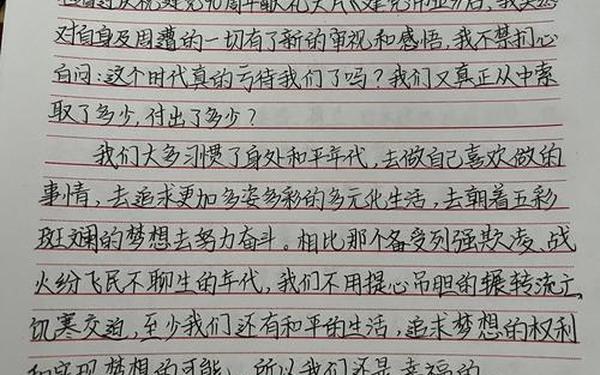 看过庆祝建党90周年献礼大片《建党伟业》后，我突然
对自身及周遭的一切有了新的审视和感悟。我不禁扪心
自问：这个时代真的亏待我们了吗？我们又真正从中索
取了多少，付出了多少？
我们大多习惯了身处和平年代，去做自己喜欢做的
事情，去追求更加多姿多彩的多元化生活，去朝着五彩
斑斓的梦想去努力奋斗。相比那个备受列强欺凌、战
火纷飞民不聊生的年代，我们不用提心吊胆的辗转流亡，
饥寒交迫，至少我们还有和平的生活，追求梦想的权利
和实现梦想的可能，所以我们还是幸福的